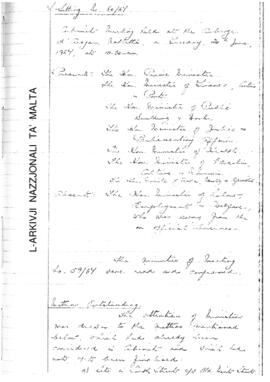 Sitting No. 60/64
Cabinet Meeting held at the Auberge
d'Aragon, Valletta on Tuesday,
1964, at 10.30 a.m.
Present: The Hon. Prime Minister
The Hon. Minister of Finance, Customs
& Port
The Hon. Minister of Public
Building & Works
The Hon. Minister of Justice &
Parliamentary Affairs
The Hon. Minister of Health
The Hon. Minister of Education,
Culture & Tourism
The Hon. Minister of Trade, Industry & Agriculture
Absent: The Hon. Minister of Labour,
Employment & Welfare,
who was away from the
on official business.
The Minutes of Meeting
No. 59/64 were read and confirmed.
Matters Outstanding.
The attention of Ministers
was drawn to the matters mentioned
below, which had already been
considered in Cabinet and which had
not yet been finalised:
a) Site in
L-ARKIVJI NAZZJONALI TA' MALTA